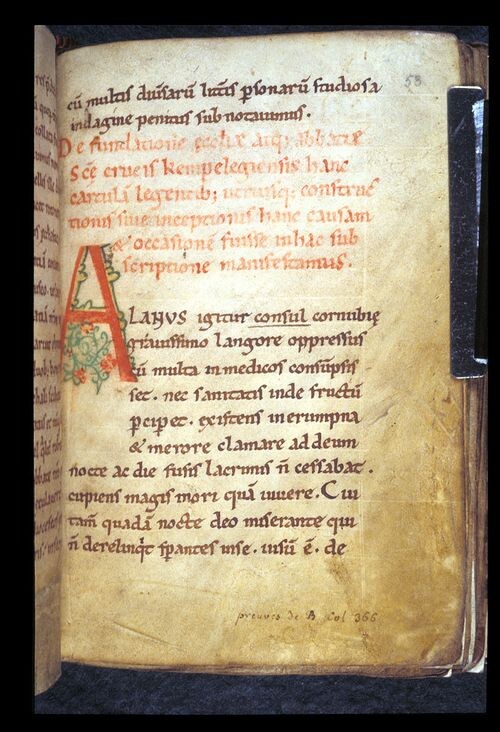 53
cū multis diūsarū lūtis psonarū studiosa
indagine penitus sub notauimus.
De fundatione ecclȩ atq; abbatiȩ
Scȩ crucis Kempelegiensis hanc
cartulā legentib; utriusq; construc
tionis siue inceptionis hanc causam
& occasionē fuisse in hac sub
scriptione manifestamus.
ALANVS igitur consul cornubiȩ
grauissimo langore oppressus
cū multa in medicos consūpsis
set. nec sanitatis inde fructū
pciperet. existens in erumpna
& merore clamare ad deum
nocte ac die fusis lacrimis ñ cessabat.
cupiens magis mori quā uiuere. Cui
tam quadā nocte deo miserante qui
ñ derelinqt sperantes in se. uisū ē. de
preuves de B Col 366